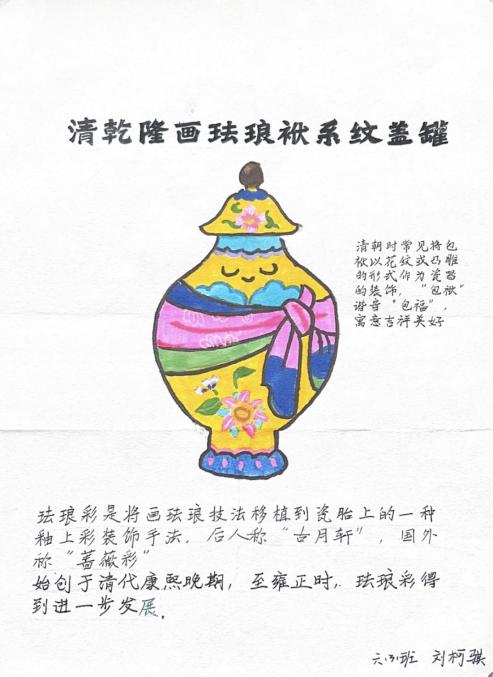 清乾隆画珐琅袱系纹盖罐
清朝时常见将包
袱以花纹或
的形式作为瓷器
的装饰，“包袱”
谐音“包福”，
寓意吉祥美好
珐琅彩是将画珐琅技法移植到瓷胎上的一种
釉上彩装饰手法，后人称“古月轩”，国外
称“蔷薇彩”
始创于清代康熙晚期，至雍正时，珐琅彩得
到进一步发展。
六.（3）班 刘柯骐